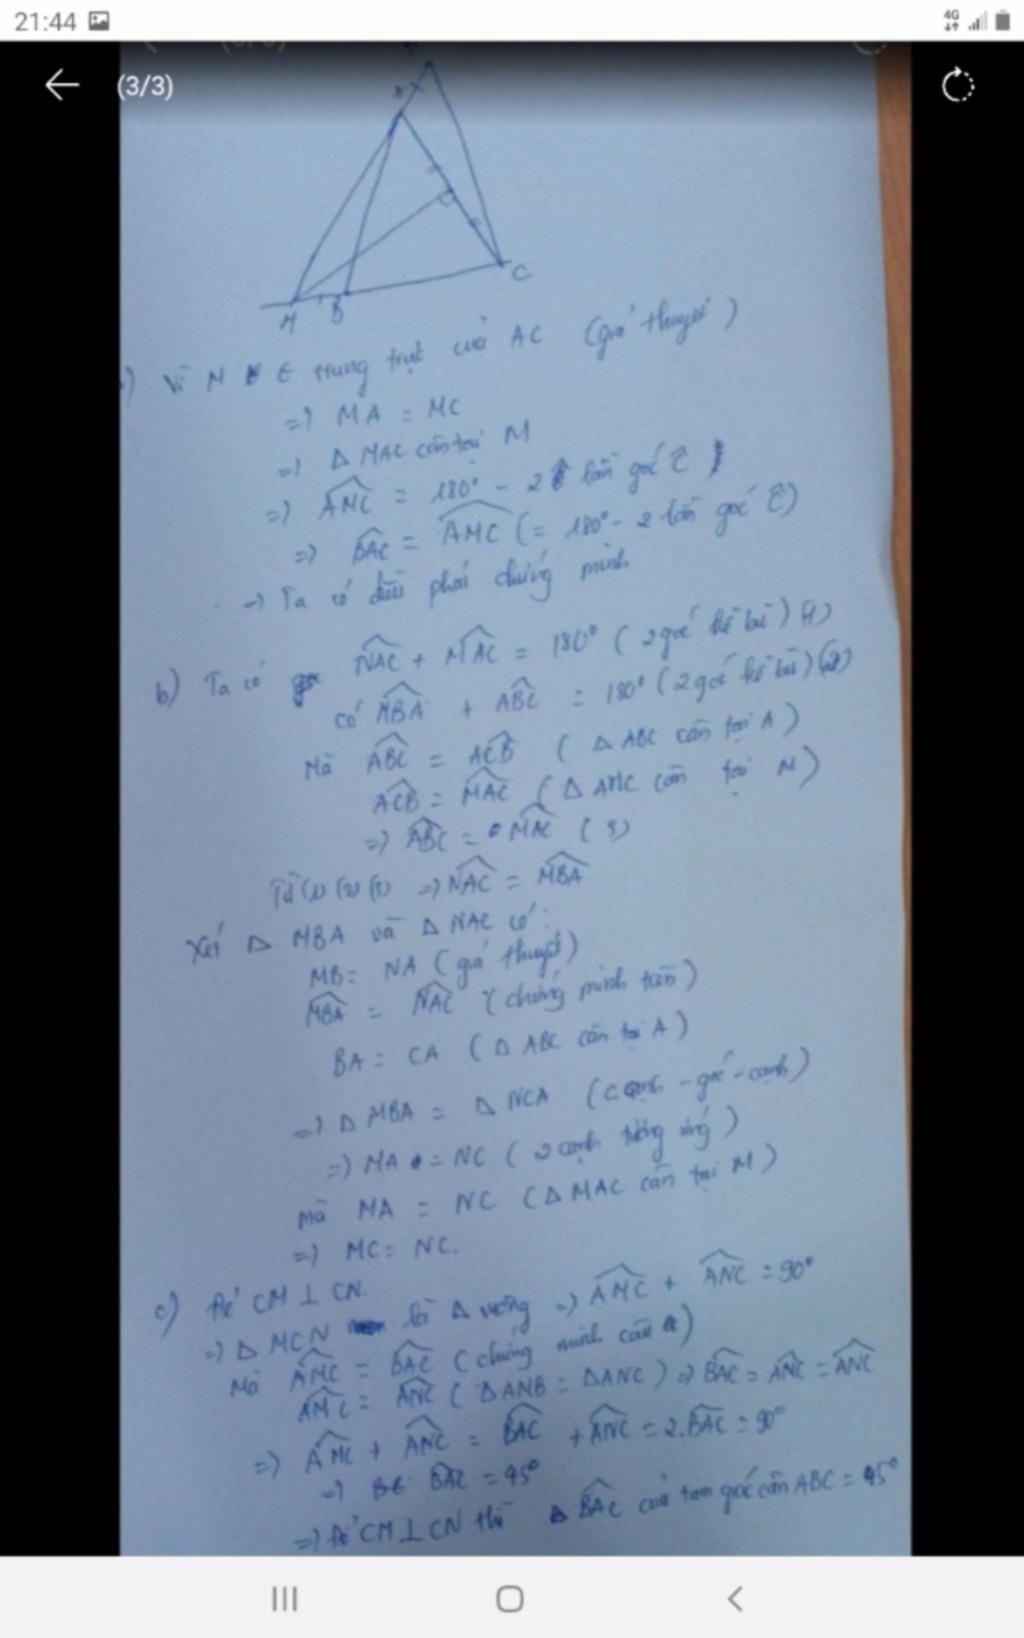 21:44
4G
(3/3)
A
M
B
C
Vì M ∈ trung trực của AC (giả thuyết)
=> MA = MC
=> Δ MAC cân tại M
=> AMC = 180° - 2 lần góc C
=> BAC = AMC (= 180° - 2 lần góc C)
=> Ta có điều phải chứng minh
b) Ta có NAC + MAC = 180° (2 góc kề bù) (1)
có MBA + ABC = 180° (2 góc kề bù) (2)
Mà ABC = ACB (Δ ABC cân tại A)
ACB = MAC (Δ AMC cân tại M)
=> ABC = MAC (3)
Từ (1) (2) (3) => NAC = MBA
Xét Δ MBA và Δ NAC có:
MB = NA (giả thuyết)
MBA = NAC (chứng minh trên)
BA = CA (Δ ABC cân tại A)
=> Δ MBA = Δ NCA (cạnh - góc - cạnh)
=> MA = NC (2 cạnh tương ứng)
mà MA = NC (Δ MAC cân tại M)
=> MC = NC.
c) Để CM ⊥ CN
=> Δ MCN là Δ vuông => AMC + ANC = 90°
Mà AMC = BAC (chứng minh câu a)
AMC = ANC (ΔAMB = ΔANC) => BAC = AMC = ANC
=> AMC + ANC = BAC + ANC = 2.BAC = 90°
=> BAC = 45°
=> Để CM ⊥ CN thì BAC của tam giác cân ABC = 45°